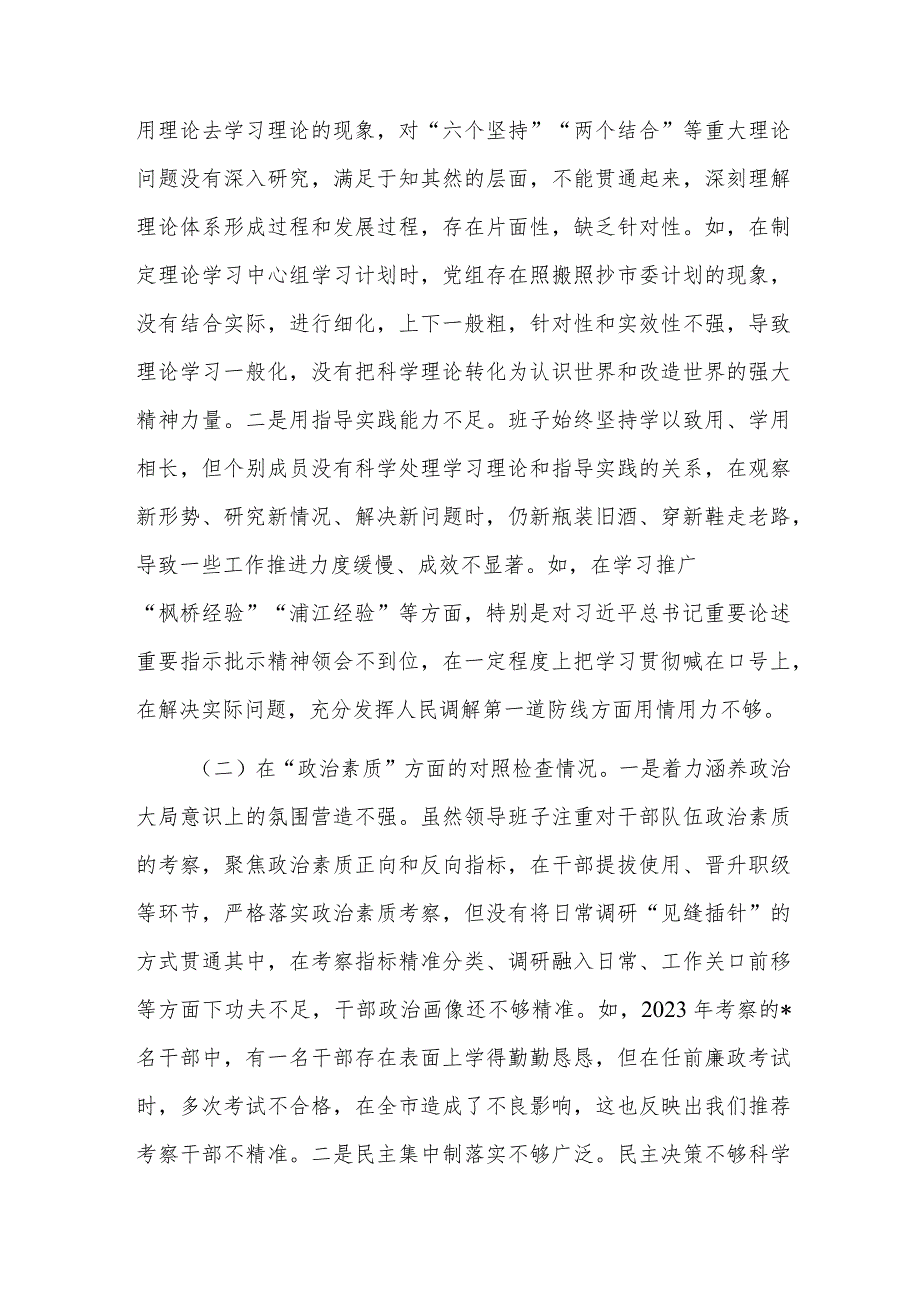 用理论去学习理论的现象，对“六个坚持”“两个结合”等重大理论
问题没有深入研究，满足于知其然的层面，不能贯通起来，深刻理解
理论体系形成过程和发展过程，存在片面性，缺乏针对性。如，在制
定理论学习中心组学习计划时，党组存在照搬照抄市委计划的现象，
没有结合实际，进行细化，上下一般粗，针对性和实效性不强，导致
理论学习一般化，没有把科学理论转化为认识世界和改造世界的强大
精神力量。二是用指导实践能力不足。班子始终坚持学以致用、学用
相长，但个别成员没有科学处理学习理论和指导实践的关系，在观察
新形势、研究新情况、解决新问题时，仍新瓶装旧酒、穿新鞋走老路，
导致一些工作推进力度缓慢、成效不显著。如，在学习推广
“枫桥经验”“浦江经验”等方面，特别是对习近平总书记重要论述
重要指示批示精神领会不到位，在一定程度上把学习贯彻喊在口号上，
在解决实际问题，充分发挥人民调解第一道防线方面用情用力不够。
（二）在“政治素质”方面的对照检查情况。一是着力涵养政治
大局意识上的氛围营造不强。虽然领导班子注重对干部队伍政治素质
的考察，聚焦政治素质正向和反向指标，在干部提拔使用、晋升职级
等环节，严格落实政治素质考察，但没有将日常调研“见缝插针”的
方式贯通其中，在考察指标精准分类、调研融入日常、工作关口前移
等方面下功夫不足，干部政治画像还不够精准。如，2023年考察的*
名干部中，有一名干部存在表面上学得勤勤恳恳，但在任前廉政考试
时，多次考试不合格，在全市造成了不良影响，这也反映出我们推荐
考察干部不精准。二是民主集中制落实不够广泛。民主决策不够科学